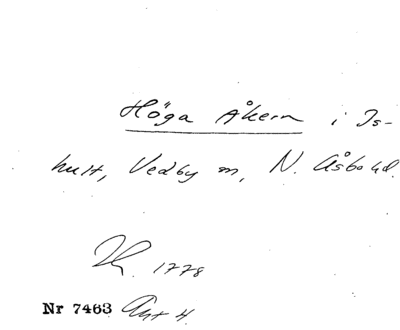 Höga Åkern i Is-
hult, Vedby m, N. Åsbo hd.
1778
Nr 7463 Akt 4